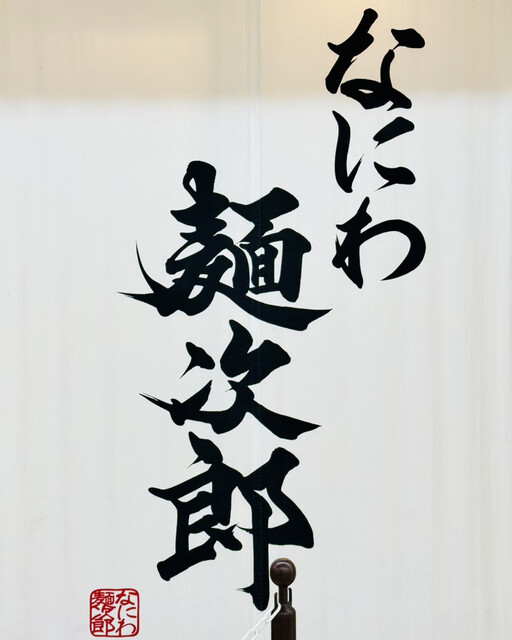 なにわ
麺次郎
なにわ
麺次郎